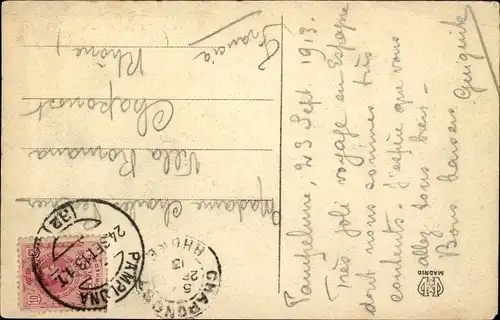 Pampelune, 23 Sept. 1913.
Très joli voyage en Espagne
dont nous sommes très
contents. J'espère que vous
allez tous bien.
Bons baisers
Madame Charles
Villa Romana
Chaponost
Rhône)
Francia
PAMPLONA
24 SET 13
(32)
CHAPONOST
RHONE
13
10
MADRID